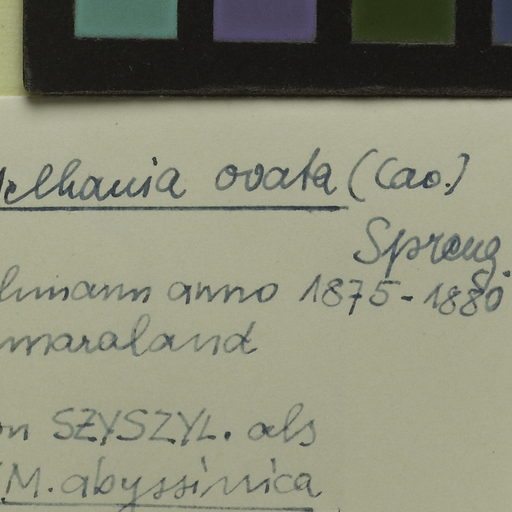 Melhania ovata (Cav.)
Spreng.
hmann anno 1875-1880
maraland
on SZYSZYL. als
M. abyssinica